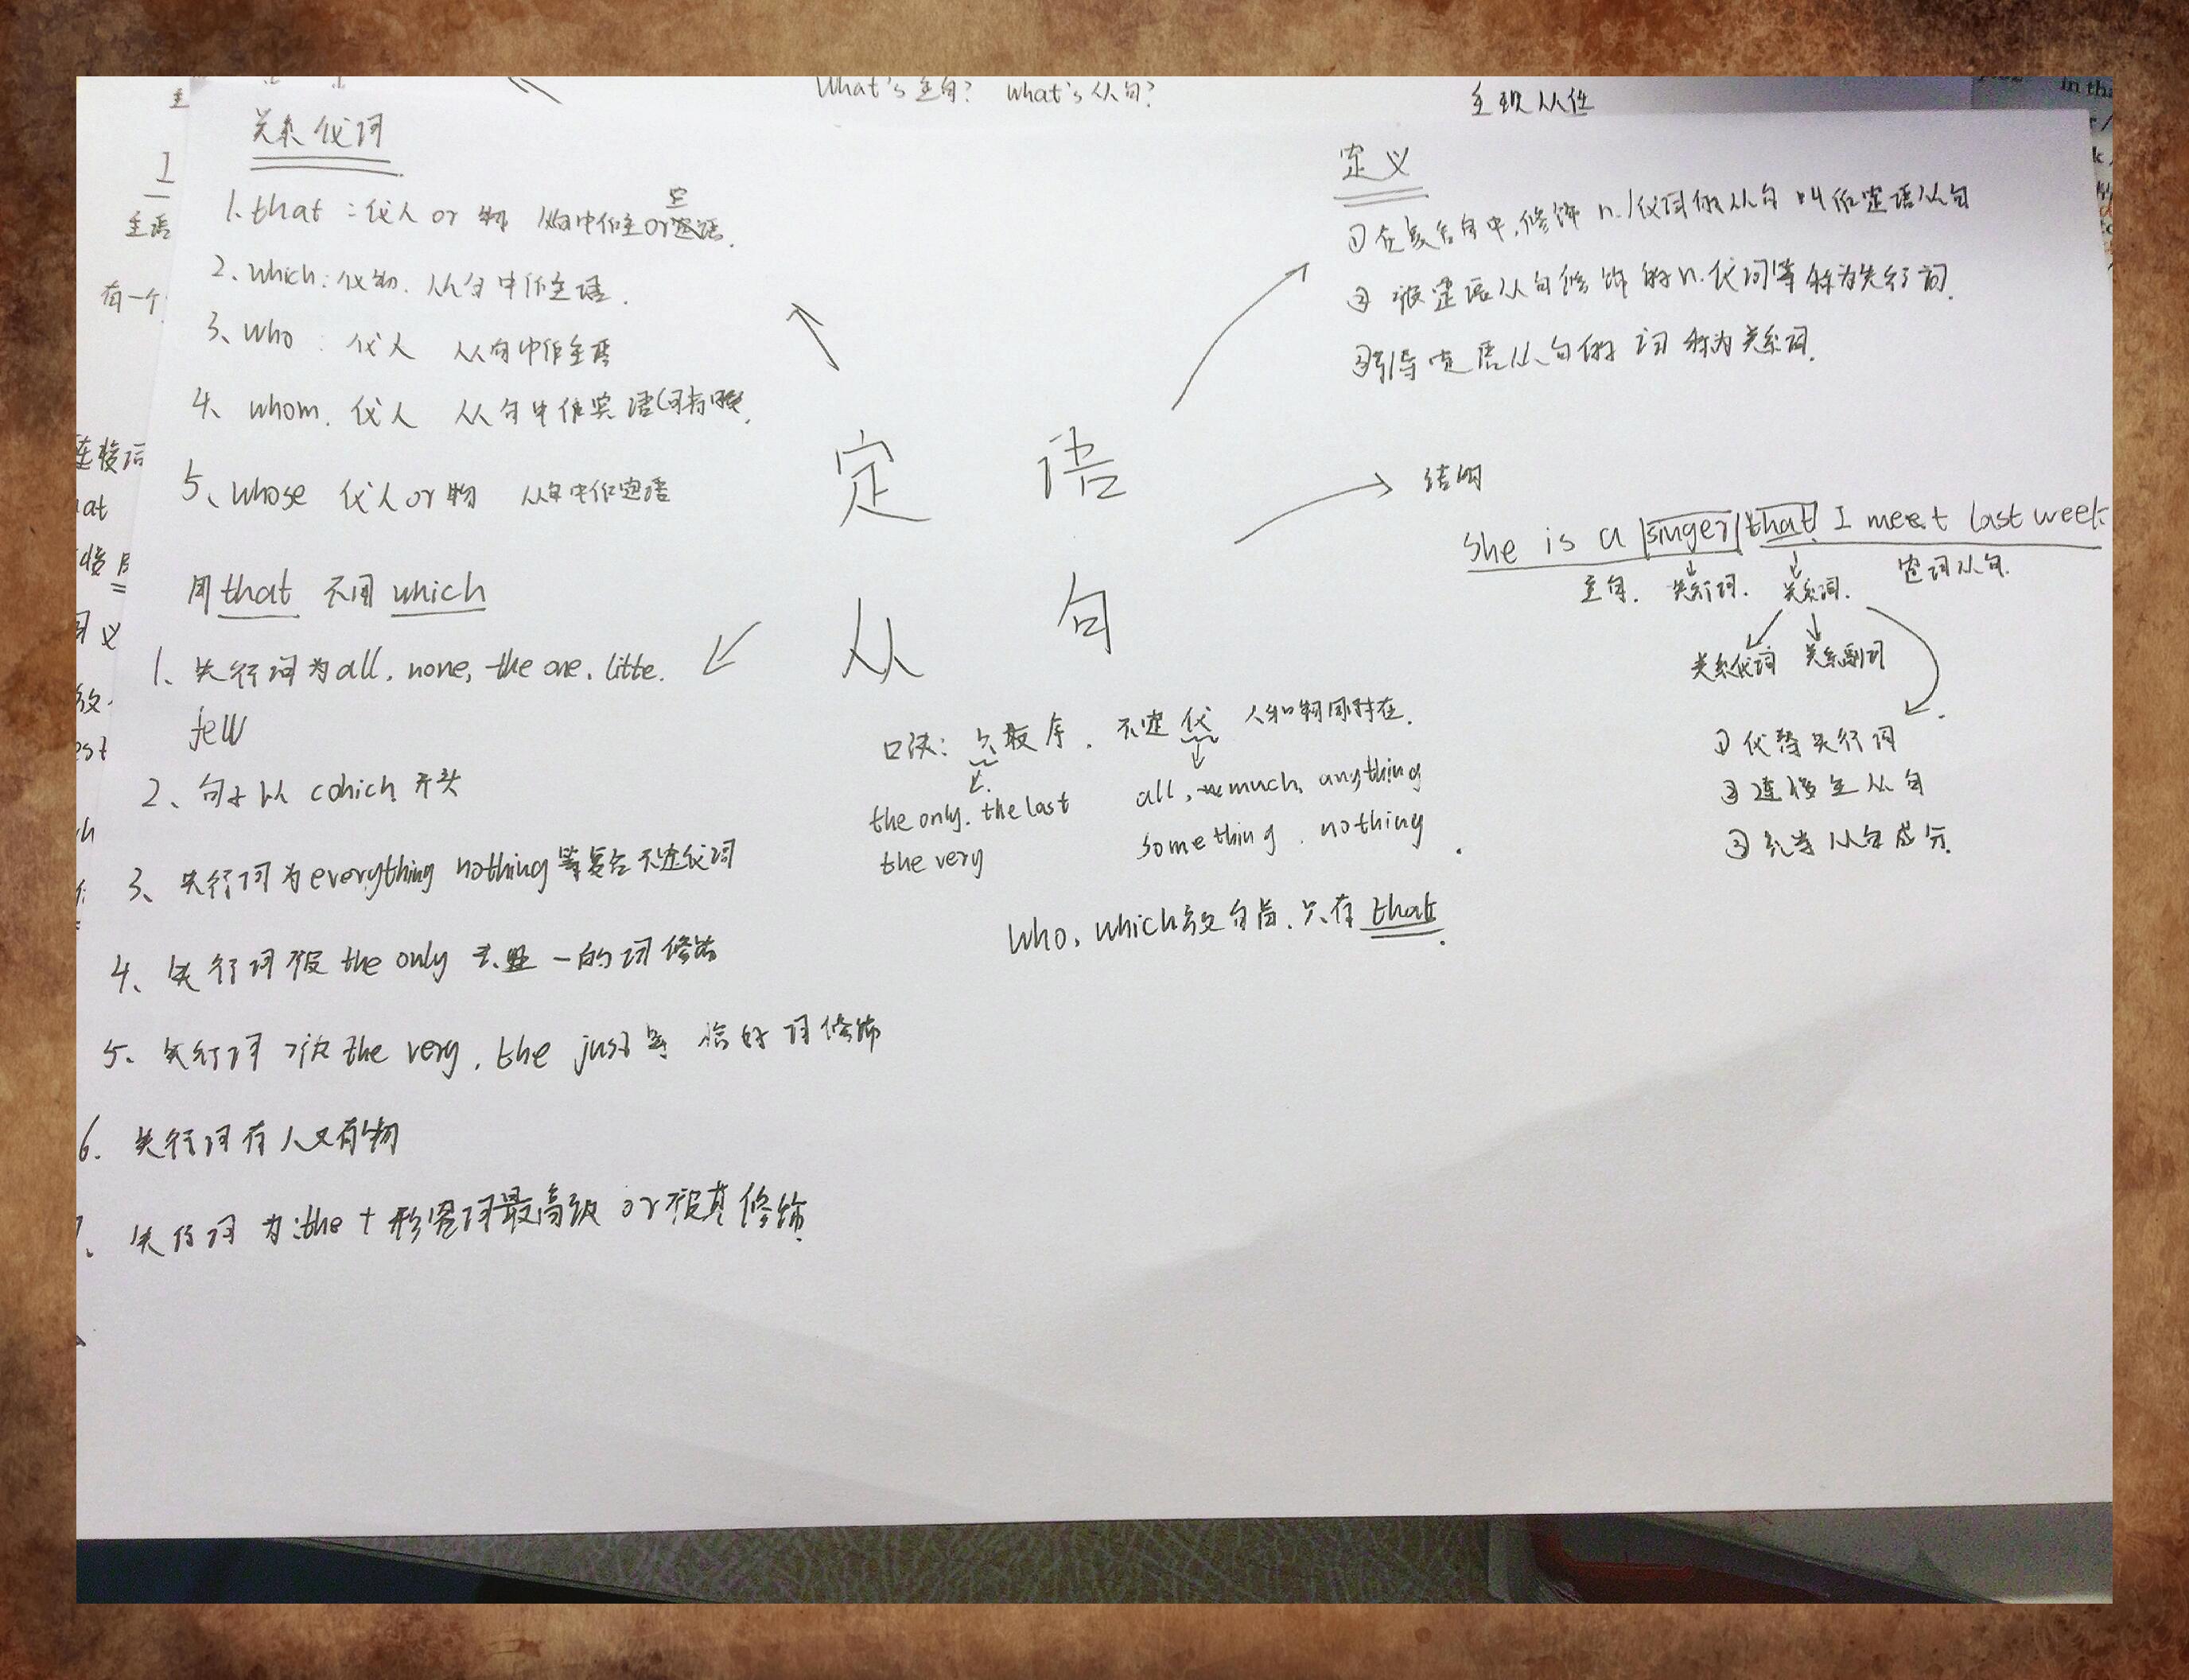 What's 主句? what's 从句?
主现从任
关系代词
1. that：代人 or 物 从句中作主or宾语.
2、which：代物. 从句中作主语.
3、who：代人 从句中作主语
4、whom. 代人 从句中作宾语
5、whose 代人or物 从句中作定语
用that 不用 which
1、先行词为all, none, the one, litte.
few
2、句子以 which 开头
3、先行词为everything nothing等复合不定代词
4、先行词被 the only 一的词修饰
5. 先行词被 the very, the just等 恰好词修饰
6. 先行词有人又有物
先行词为:the + 形容词最高级 or 被其修饰.
定语
从句
口诀：最序, 不定代 人和物同时存在.
the only. the last
the very
all, much, anything
something, nothing.
Who, which放句首, 只有 that.
定义
①在复合句中,修饰 n./代词的从句叫作定语从句
② 被定语从句修饰的n.代词等称为先行词.
③引导定语从句的词称为关系词.
结构
She is a singer that I meet last week.
主句. 先行词. 关系词. 定词从句.
关系代词 关系副词
① 代替先行词
② 连接主从句
③ 充当从句成分.
主语
有一个
连接词
at
义
est
in tha